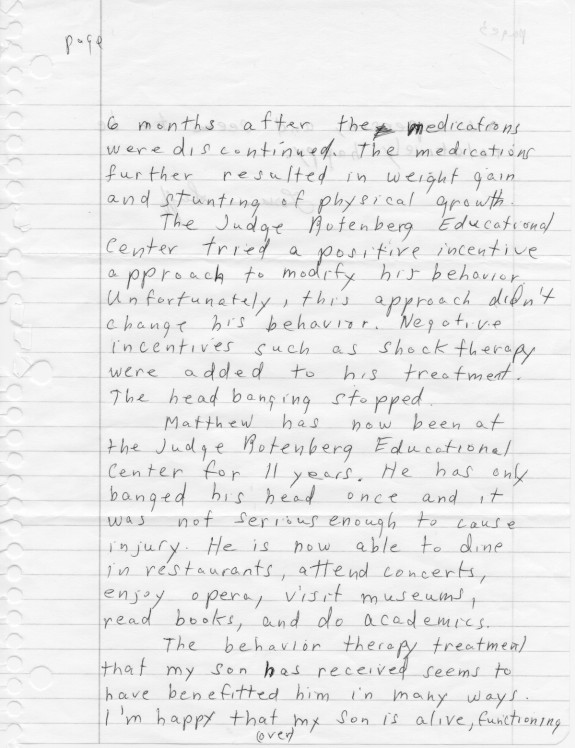 page
6 months after the medications
were discontinued. The medications
further resulted in weight gain
and stunting of physical growth.
The Judge Rotenberg Educational
Center tried a positive incentive
approach to modify his behavior
Unfortunately, this approach didn't
change his behavior. Negative
incentives such as shock therapy
were added to his treatment.
The head banging stopped.
Matthew has now been at
the Judge Rotenberg Educational
Center for 11 years. He has only
banged his head once and it
was not serious enough to cause
injury. He is now able to dine
in restaurants, attend concerts,
enjoy opera, visit museums,
read books, and do academics.
The behavior therapy treatment
that my son has received seems to
have benefitted him in many ways.
I'm happy that my son is alive, functioning
(over)